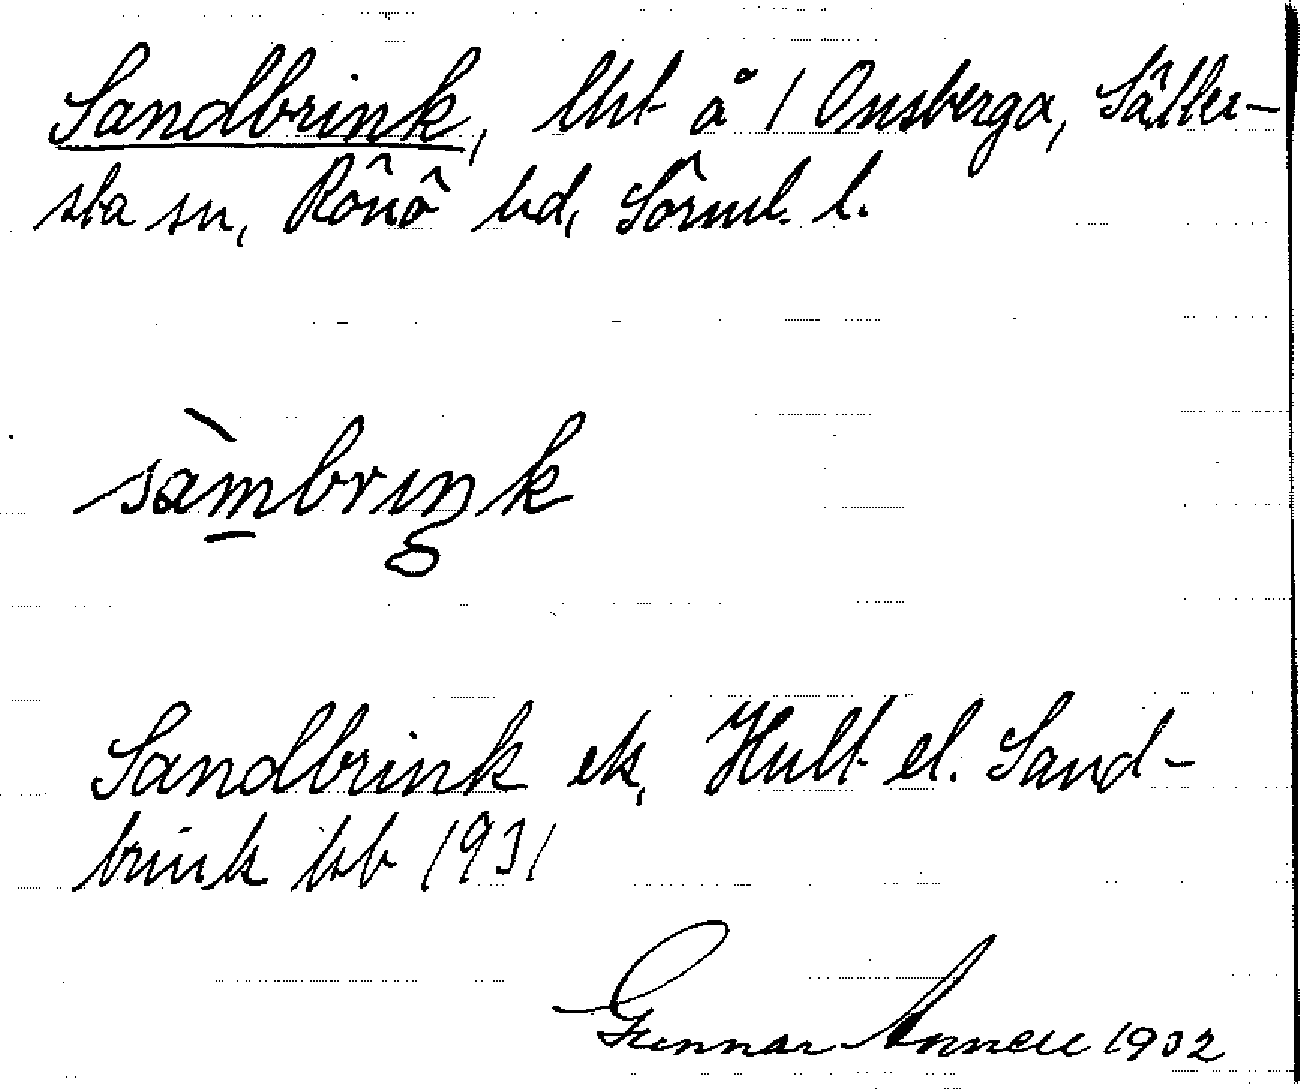 Sandbrink, lht å 1 Onsberga, Sätter-
sta sn, Rönö hd, Sörml. l.
sàmbrıŋk
Sandbrink ek, Hult el. Sand-
brink kb 1931
Gunnar Annell 1932